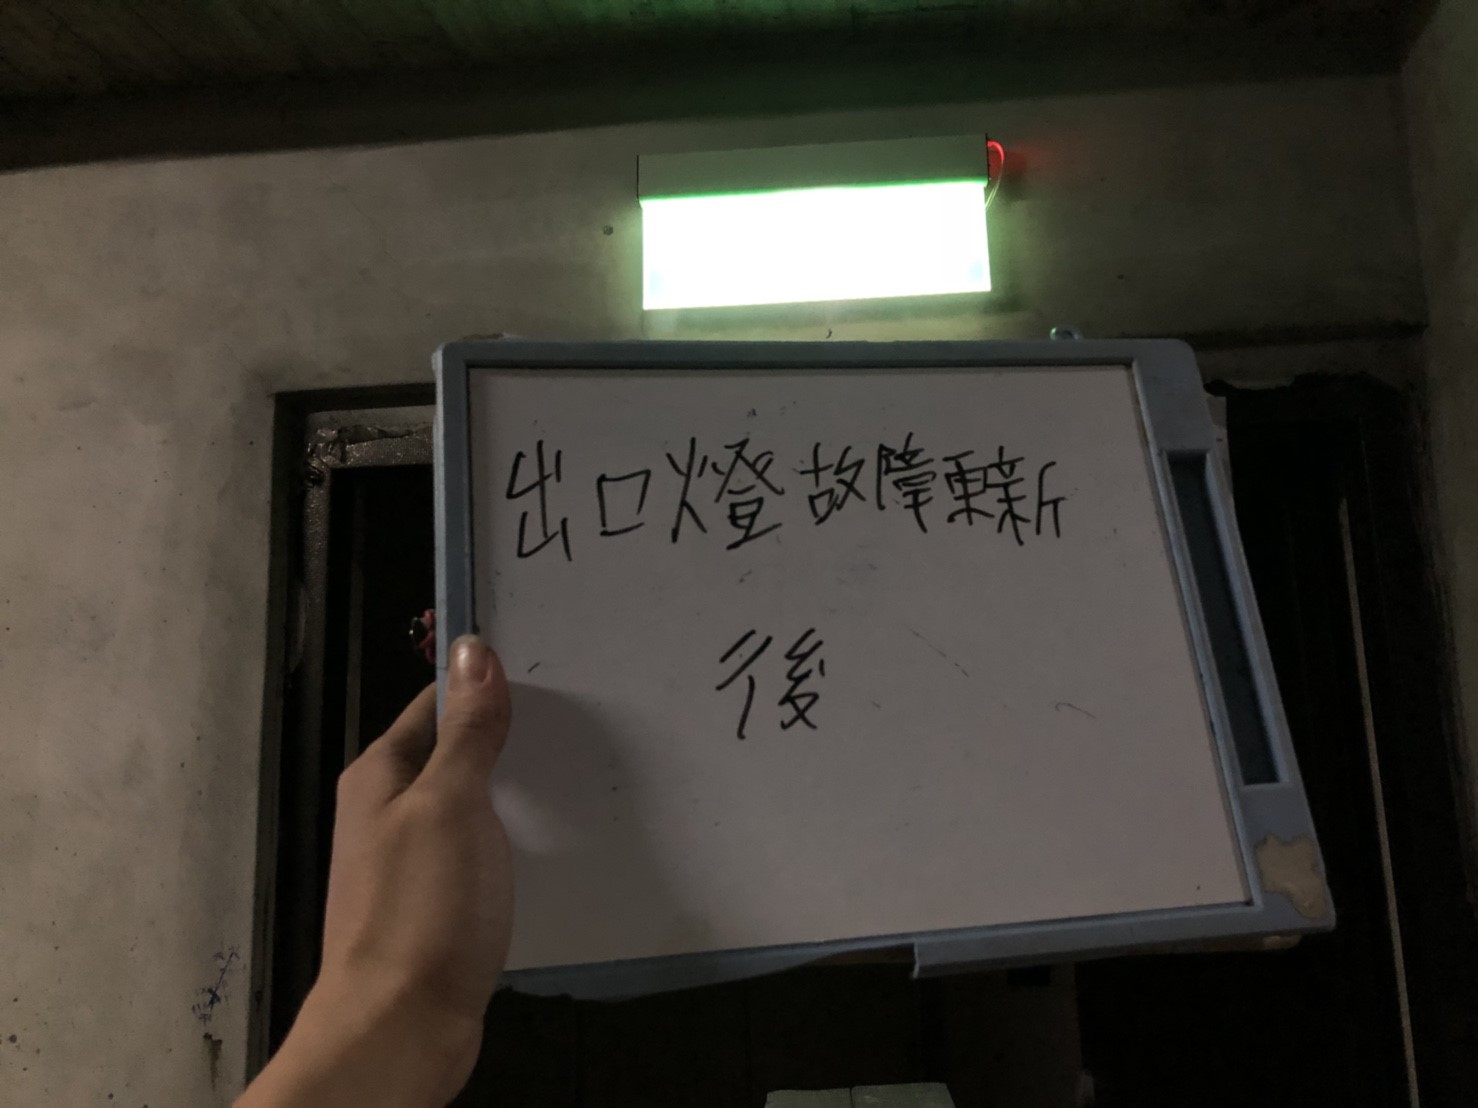 出口燈故障更新
後